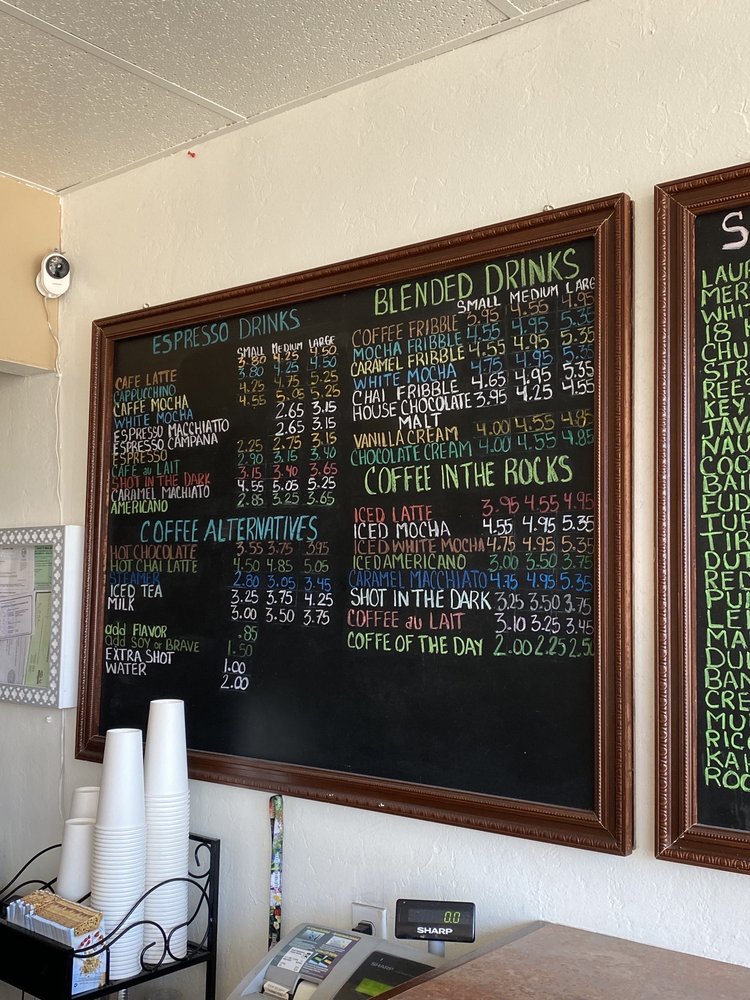 ESPRESSO DRINKS
SMALL MEDIUM LARGE
CAFE LATTE 3.80 4.25 4.50
CAPPUCCINO 3.80 4.25 4.50
CAFFE MOCHA 4.25 4.75 5.25
WHITE MOCHA 4.55 5.05 5.25
ESPRESSO MACCHIATO 2.65 3.15
ESPRESSO CAMPANA 2.65 3.15
ESPRESSO 2.25 2.75 3.15
CAFE au LAIT 2.90 3.15 3.40
SHOT IN THE DARK 3.15 3.40 3.65
CARAMEL MACHIATO 4.55 5.05 5.25
AMERICANO 2.85 3.25 3.65
COFFEE ALTERNATIVES
HOT CHOCOLATE 3.55 3.75 3.95
HOT CHAI LATTE 4.50 4.85 5.05
STEAMER 2.80 3.05 3.45
ICED TEA 3.25 3.75 4.25
MILK 3.00 3.50 3.75
add FLAVOR .85
add SOY or BRAVE 1.50
EXTRA SHOT 1.00
WATER 2.00
BLENDED DRINKS
SMALL MEDIUM LARGE
COFFEE FRIBBLE 3.95 4.55 4.95
MOCHA FRIBBLE 4.55 4.95 5.35
CARAMEL FRIBBLE 4.55 4.95 5.35
WHITE MOCHA 4.75 4.95 5.35
CHAI FRIBBLE 4.65 4.95 5.35
HOUSE CHOCOLATE 3.95 4.25 4.55
MALT
VANILLA CREAM 4.00 4.55 4.85
CHOCOLATE CREAM 4.00 4.55 4.85
COFFEE IN THE ROCKS
ICED LATTE 3.95 4.55 4.95
ICED MOCHA 4.55 4.95 5.35
ICED WHITE MOCHA 4.75 4.95 5.35
ICED AMERICANO 3.00 3.50 3.75
CARAMEL MACCHIATO 4.75 4.95 5.35
SHOT IN THE DARK 3.25 3.50 3.75
COFFEE au LAIT 3.10 3.25 3.45
COFFE OF THE DAY 2.00 2.25 2.50
S
LAUR
MER
WHIT
18
CHU
STR
REES
KEY
JAVA
COO
FUD
TUR
TIR
DUT
RED
DUL
BAN
CRE
RICO
KAH
ROC
0.0
SHARP
SHARP